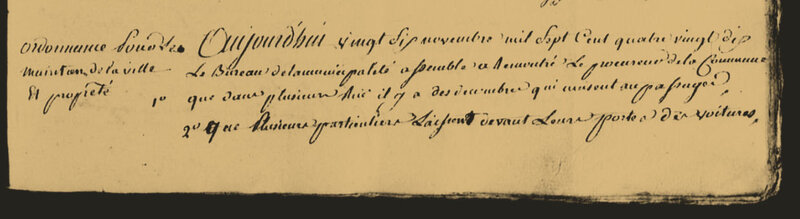 ordonnance pour le
maintien de la ville
Et propreté
Aujourdhui vingt six novembre mil sept Cent quatre vingt dix
Le Bureau de la municipalité assemblé a Remontré Le procureur de la Commune
1º que dans plusieurs Rue il y a des decombres qui nuisent au passage,
2º que Plusieurs particuliers Laissent devant Leurs portes des voitures,